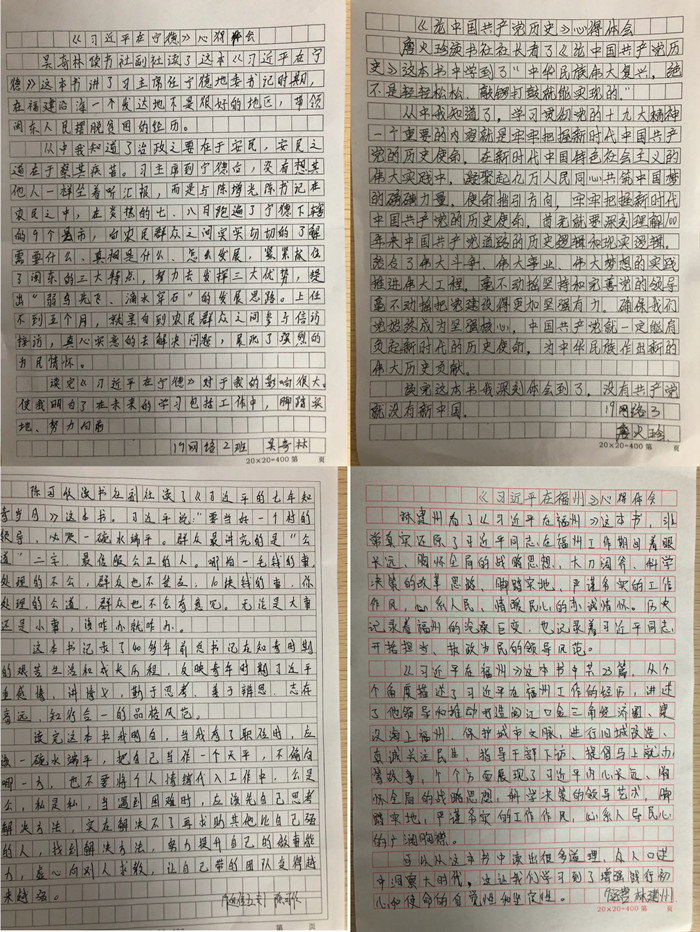 《习近平在宁德》心得体会
吴奇林读书社副社读了这本《习近平在宁
德》这本书讲了习主席任宁德地委书记时期,
在福建沿海一个发达地不是很好的地区,带领
闽东人民摆脱贫困的经历。
从中我知道了治政之要在于安民,安民之
道在于察其疾苦。习主席到宁德台,没有想其
他人一样坐着听汇报,而是与陈增光陈书记在
农民之中,在炎热的七、八月跑遍了宁德下辖
的9个县市,向农民群众之间实实切切的了解
需要什么、真相是什么、怎么发展,紧紧抓住
了闽东的三大特点,努力去发挥三大优势,提
出“弱鸟先飞、滴水穿石”的发展思路。上任
不到三个月,就亲自到农民群众之间参与信访
接访,真心实意的去解决问题,展现了强烈的
为民情怀。
读完《习近平在宁德》对于我的影响很大。
使我明白了在未来的学习包括工作中,脚踏实
地、努力向前
17网络2班 吴奇林
20×20=400 第 页
《论中国共产党历史》心得体会
詹火珍读书社社长看了《论中国共产党历
史》这本书中学到了“中华民族伟大复兴,绝
不是轻轻松松、敲锣打鼓就能实现的。”
从中我知道了,学习贯彻党的十九大精神
一个重要的内容就是牢牢把握新时代中国共产
党的历史使命,在新时代中国特色社会主义的
伟大实践中,凝聚起亿万人民同心共筑中国梦
的磅礴力量。使命指引方向,牢牢把握新时代
中国共产党的历史使命,首先就要深刻理解100
年来中国共产党道路的历史逻辑和现实逻辑。
结合了伟大斗争、伟大事业、伟大梦想的实践
推进伟大工程,毫不动摇坚持和完善党的领导
毫不动摇把党建设得更加坚强有力。确保我们
党始终成为坚强核心,中国共产党就一定能肩
负起新时代的历史使命,为中华民族作出新的
伟大历史贡献。
读完这本书我深刻体会到了,没有共产党
就没有新中国。 17网络3
詹火珍
20×20=400 第 页
陈可钦读书社副社读了《习近平的七年知
青岁月》这本书。习近平说:“要当好一个村的
领导,必须一碗水端平。群众最讲究的是“公
道”二字,最信服公正的人。哪怕一毛钱的事,
处理的不公,群众也不答应;10块钱的事,你
处理的公道,群众也不会有意见。无论是大事
还是小事,该咋办就咋办。
这本书记录了40多年前总书记在知青时期
的艰苦生活和成长历程,反映青年时期习近平
重感情、讲情义,勤于思考、善于辨思、志存
高远、知行合一的品格风范。
读完这本书我明白,当我有了职位时,应
该一碗水端平,把自己当作一个天平,不偏向
哪一方,也不要将个人情绪代入工作中,公是
公,私是私,当遇到困难时,应该先自己思考
解决方法,实在解决不了再求助其他比自己强
的人,找到解决方法,努力提升自己的做事能
力,虚心向别人求教,让自己带的团队变得越
来越强。
第 页
《习近平在福州》心得体会
林建州看了《习近平在福州》这本书,非
常真实还原了习近平同志在福州工作期间着眼
长远、胸怀全局的战略思想,大刀阔斧、科学
决策的改革思路,脚踏实地、严谨务实的工作
作风,心系人民、情暖民心的赤诚情怀。历史
记录着福州的沧桑巨变,也记录着习近平同志
开拓担当、执政为民的领导风范。
《习近平在福州》这本书中共23篇,从个
个角度描述了习近平在福州工作的经历,讲述
了他领导和推动打造闽江口金三角经济圈、建
设海上福州、保护城中文脉、进行旧城改造、
真诚关注民生、指导干部下访、提倡马上就办
等故事,个个方面展现了习近平内心长远、胸
怀全局的战略思想,科学决策的领导艺术,脚
踏实地,严谨务实的工作作风,心系人民民心
的广阔胸襟。
可以从这本书中读出很多道理,众人口述
中洞察大时代,这让我们学习到了增强践行初
心和使命的自觉性和坚定性。 运营 林建州
20×20=400 第 页